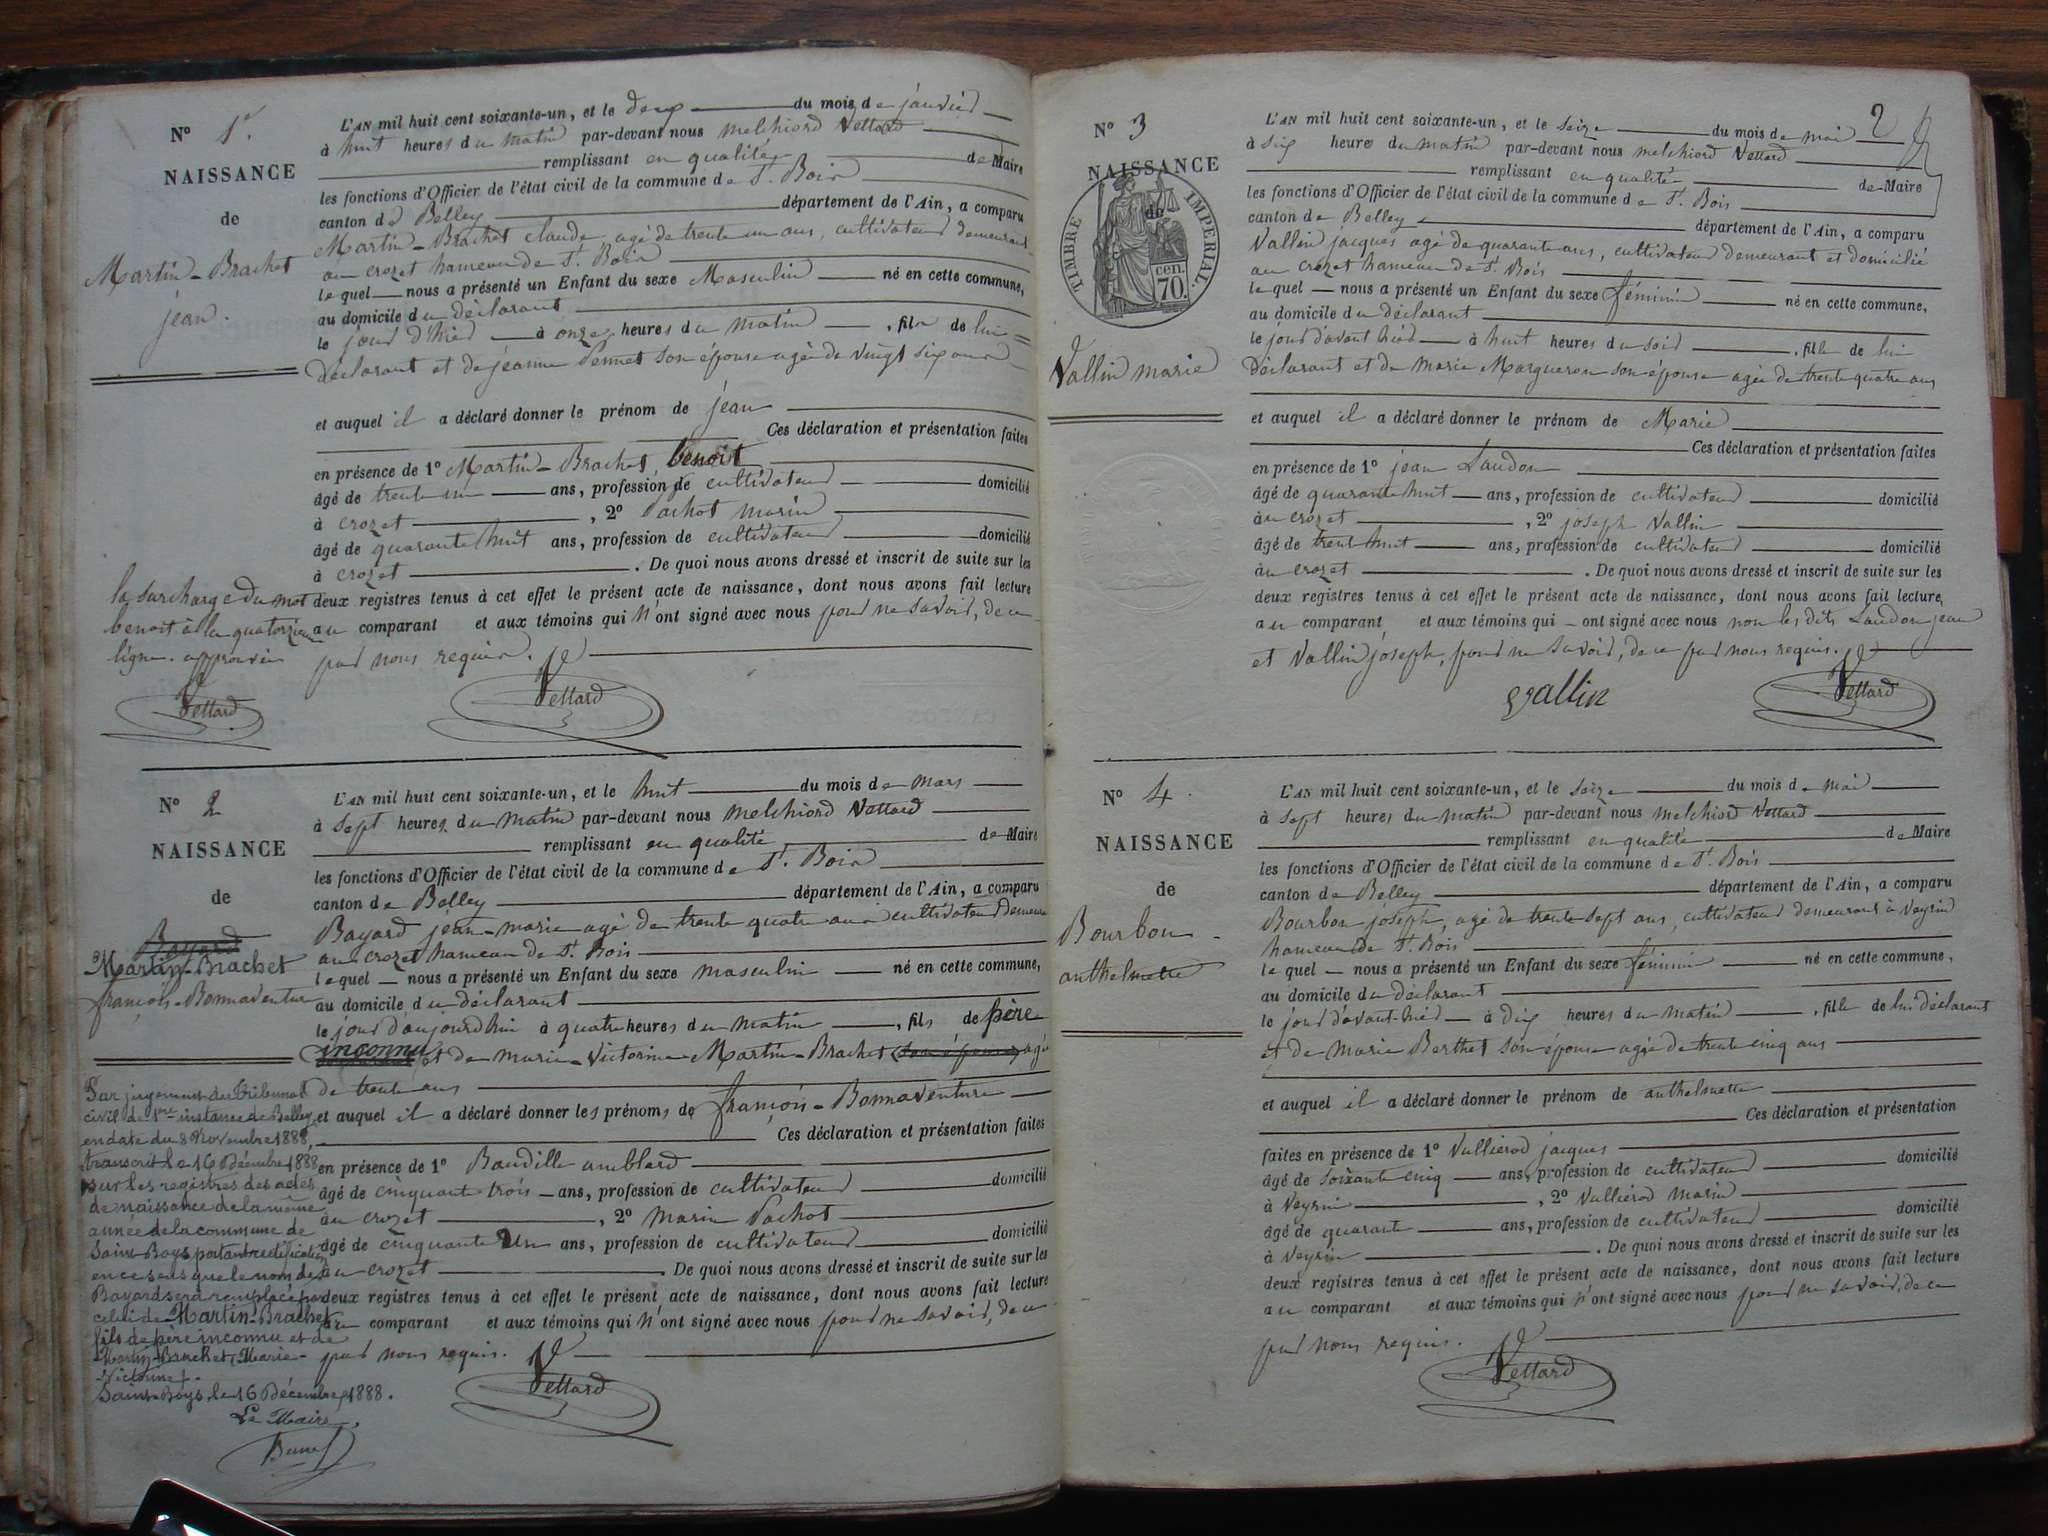 N° 1er.
NAISSANCE
de
Martin-Brachet
jean.
L'AN mil huit cent soixante-un, et le deux du mois de janvier
à huit heures du matin par-devant nous melchiord Vettard
remplissant en qualité de Maire
les fonctions d'Officier de l'état civil de la commune de St. Bois
canton de Belley département de l'Ain, a comparu
Martin-Brachet claude agé de trente un ans, cultivateur demeurant
au crozet hameau de St. Bois
lequel nous a présenté un Enfant du sexe Masculin né en cette commune,
au domicile du déclarant
le jour d'hier à onze heures du matin, fils de lui
déclarant et de jeanne Pennet son épouse agée de vingt six ans
et auquel il a déclaré donner le prénom de jean
Ces déclaration et présentation faites
en présence de 1° Martin-Brachet benoit
âgé de trente un ans, profession de cultivateur domicilié
à crozet, 2° Pachot marin
âgé de quarante huit ans, profession de cultivateur domicilié
à crozet. De quoi nous avons dressé et inscrit de suite sur les
deux registres tenus à cet effet le présent acte de naissance, dont nous avons fait lecture
au comparant et aux témoins qui n'ont signé avec nous pour ne savoir, de ce
par nous requis.
Vettard
la surcharge du mot
benoit à la quatorzieme
ligne. approuvée
Vettard
N° 2
NAISSANCE
de
Bayard
Martin-Brachet
françois-Bonnaventure
L'AN mil huit cent soixante-un, et le huit du mois de mars
à sept heures du matin par-devant nous melchiord Vettard
remplissant en qualité de Maire
les fonctions d'Officier de l'état civil de la commune de St. Bois
canton de Belley département de l'Ain, a comparu
Bayard jean-marie agé de trente quatre ans cultivateur demeurant
au crozet hameau de St. Bois
lequel nous a présenté un Enfant du sexe masculin né en cette commune,
au domicile du déclarant
le jour d'aujourdhui à quatre heures du matin, fils de père
inconnu et de marie-Victorine Martin-Brachet (son épouse) agée
de trente ans
et auquel il a déclaré donner les prénoms de françois-Bonnaventure
Ces déclaration et présentation faites
en présence de 1° Baudille amblard
âgé de cinquante trois ans, profession de cultivateur domicilié
au crozet, 2° marin Pachot
âgé de cinquante un ans, profession de cultivateur domicilié
au crozet. De quoi nous avons dressé et inscrit de suite sur les
deux registres tenus à cet effet le présent acte de naissance, dont nous avons fait lecture
au comparant et aux témoins qui n'ont signé avec nous pour ne savoir, de ce
par nous requis.
Vettard
Par jugement du Tribunal
civil de 1ère instance de Belley
en date du 8 Novembre 1888,
transcrit le 16 Décembre 1888
sur les registres des actes
de naissance de la même
année de la commune de
Saint-Boys portant rectification
en ce sens que le nom de
Bayard sera remplacé par
celui de Martin-Brachet
fils de père inconnu et de
Martin-Brachet Marie-
Victorine.
Saint-Boys, le 16 Décembre 1888.
Le Maire,
2
N° 3
NAISSANCE
de
TIMBRE IMPERIAL.
70. cen.
Vallin marie
L'AN mil huit cent soixante-un, et le seize du mois de mai
à six heures du matin par-devant nous melchiord Vettard
remplissant en qualité de Maire
les fonctions d'Officier de l'état civil de la commune de St. Bois
canton de Belley département de l'Ain, a comparu
Vallin jacques agé de quarante ans, cultivateur demeurant et domicilié
au crozet hameau de St. Bois
lequel nous a présenté un Enfant du sexe féminin né en cette commune,
au domicile du déclarant
le jour d'avant hier à huit heures du soir, fille de lui
déclarant et de marie Margueron son épouse agée de trente quatre ans
et auquel il a déclaré donner le prénom de Marie
Ces déclaration et présentation faites
en présence de 1° jean Laudon
âgé de quarante huit ans, profession de cultivateur domicilié
au crozet, 2° joseph Vallin
âgé de trente huit ans, profession de cultivateur domicilié
au crozet. De quoi nous avons dressé et inscrit de suite sur les
deux registres tenus à cet effet le présent acte de naissance, dont nous avons fait lecture
au comparant et aux témoins qui ont signé avec nous non les dits Laudon jean
et Vallin joseph, pour ne savoir, de ce par nous requis.
Vallin
Vettard
N° 4
NAISSANCE
de
Bourbon
anthelmette
L'AN mil huit cent soixante-un, et le seize du mois de mai
à sept heures du matin par-devant nous melchiord Vettard
remplissant en qualité de Maire
les fonctions d'Officier de l'état civil de la commune de St. Bois
canton de Belley département de l'Ain, a comparu
Bourbon joseph, agé de trente sept ans, cultivateur demeurant à Veyrin
hameau de St. Bois
lequel nous a présenté un Enfant du sexe féminin né en cette commune,
au domicile du déclarant
le jour d'avant-hier à dix heures du matin, fille de lui déclarant
et de Marie Berthet son épouse agée de trente cinq ans
et auquel il a déclaré donner le prénom de anthelmette
Ces déclaration et présentation
faites en présence de 1° Vulliérod jacques
âgé de soixante cinq ans, profession de cultivateur domicilié
à Veyrin, 2° Vulliérod marin
âgé de quarante ans, profession de cultivateur domicilié
à Veyrin. De quoi nous avons dressé et inscrit de suite sur les
deux registres tenus à cet effet le présent acte de naissance, dont nous avons fait lecture
au comparant et aux témoins qui n'ont signé avec nous pour ne savoir, de ce
par nous requis.
Vettard